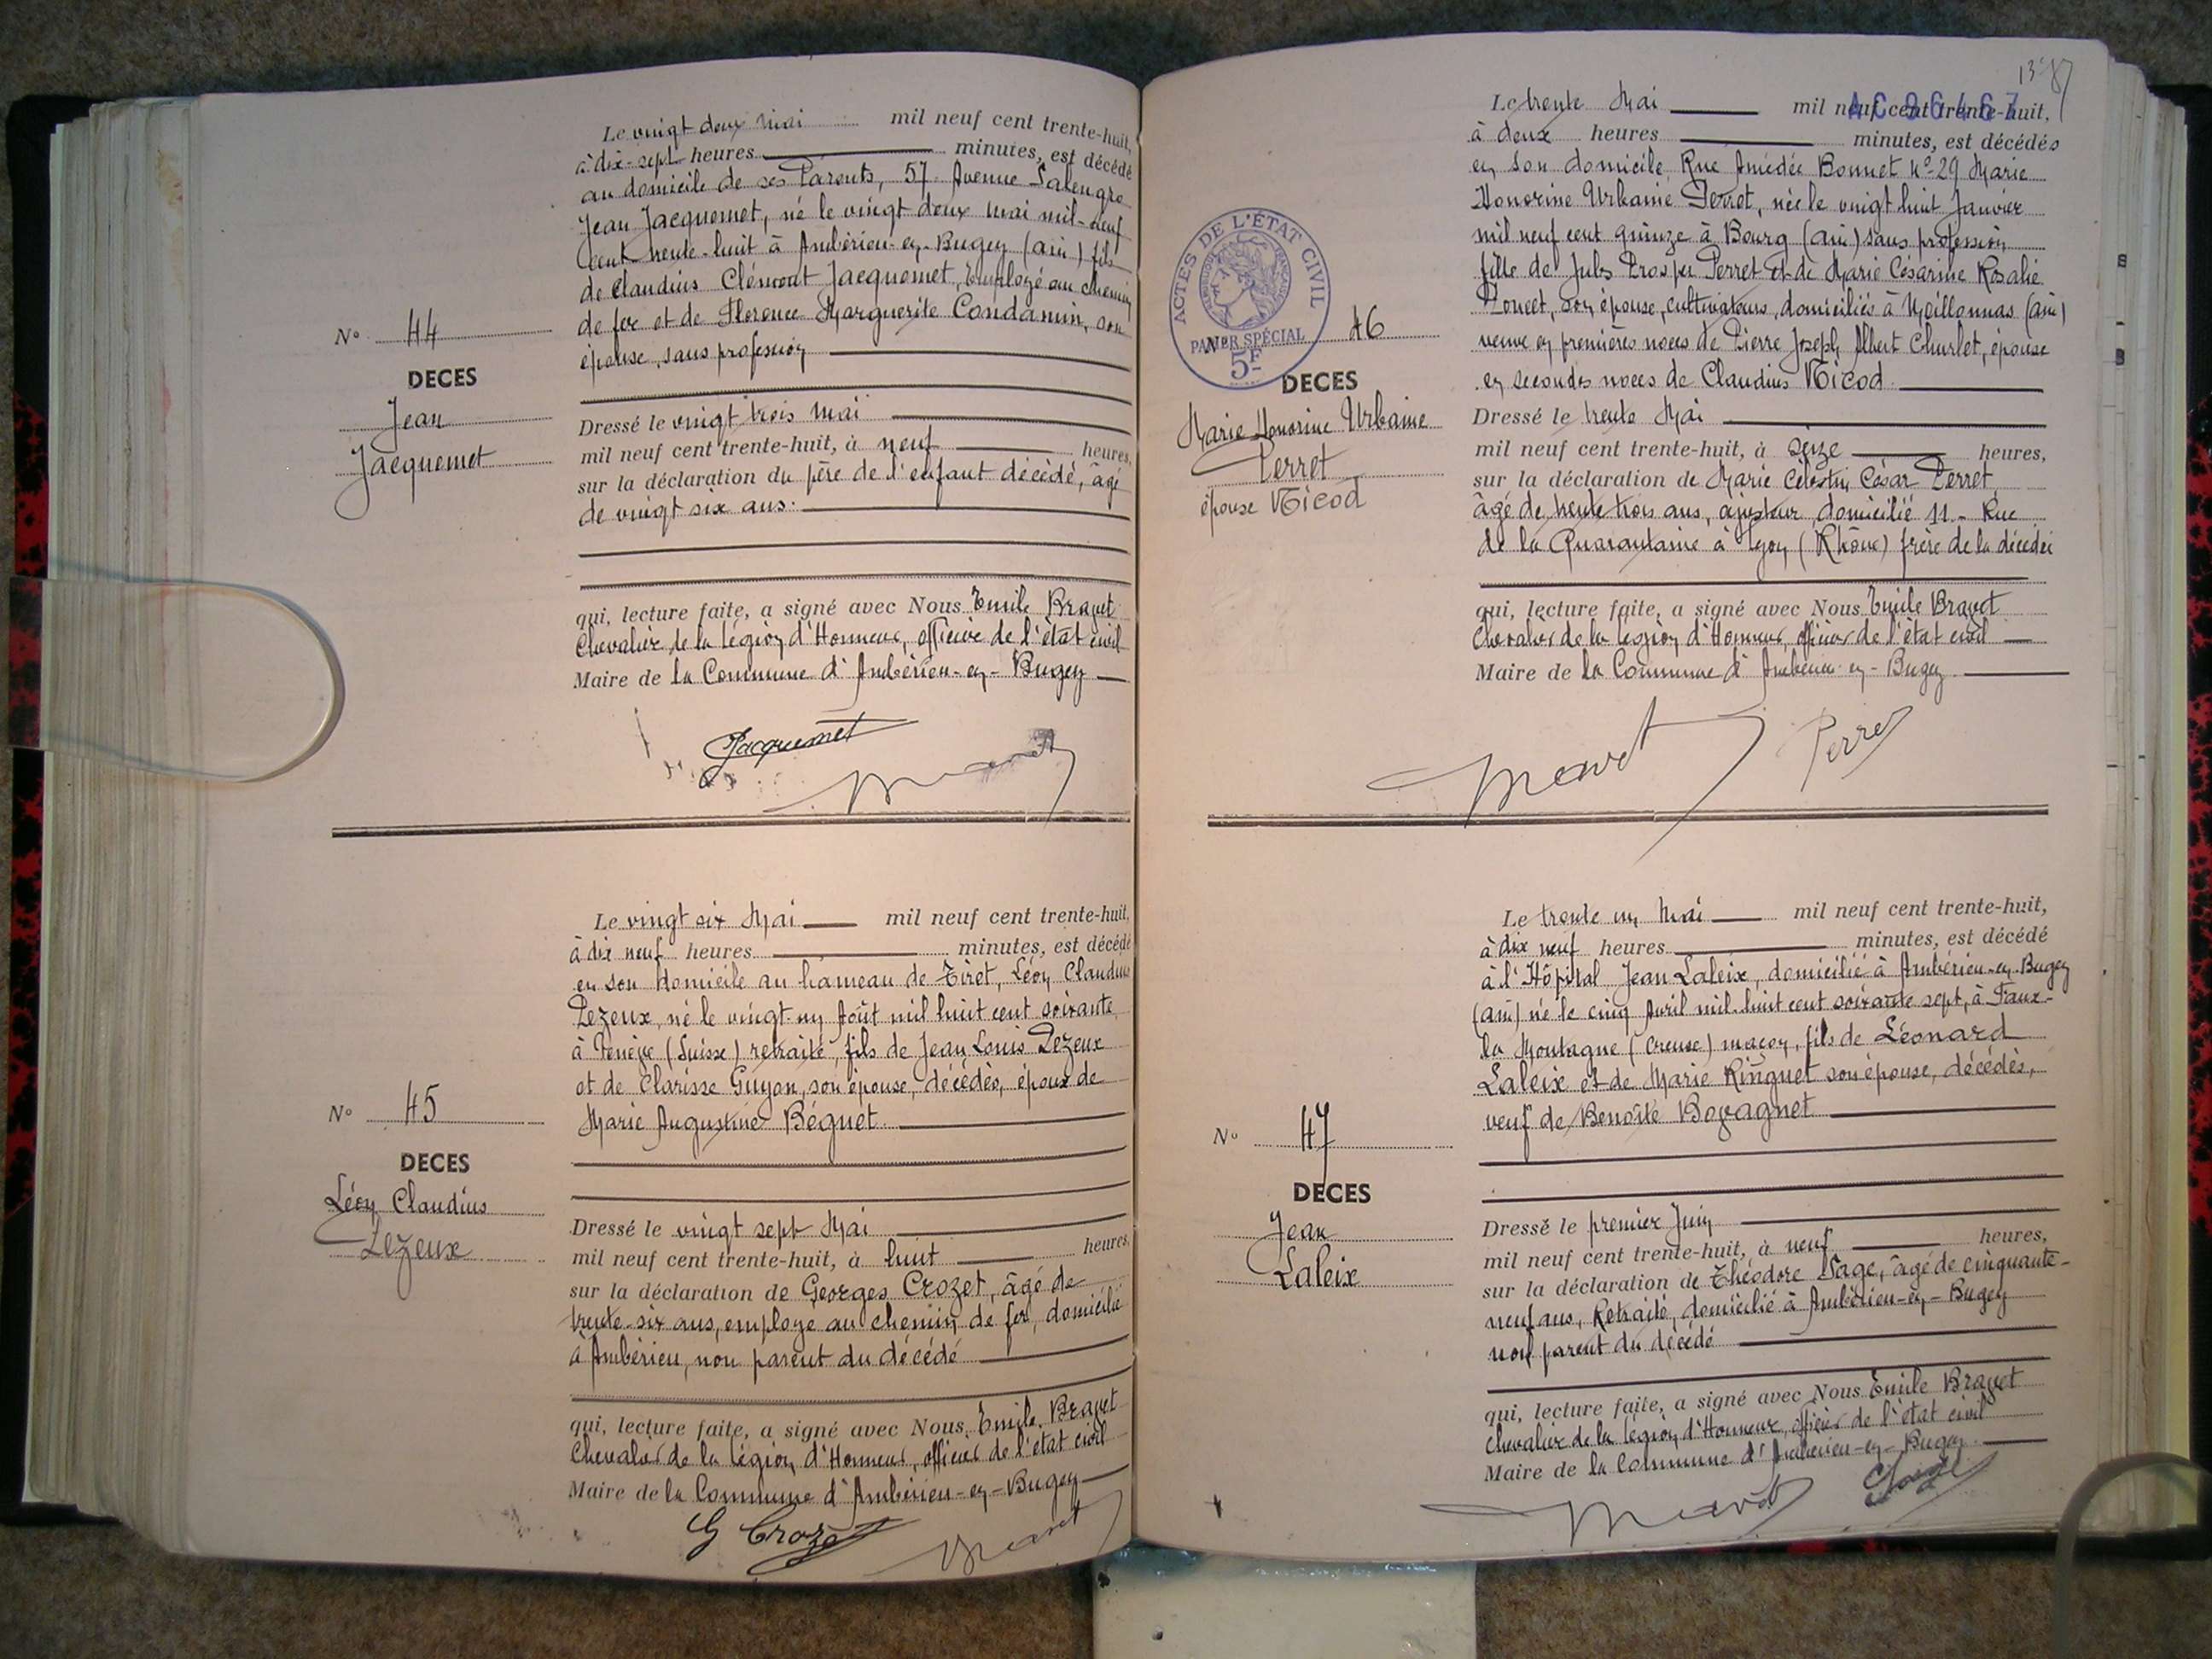 Le vingt deux mai mil neuf cent trente-huit,
à dix-sept heures minutes, est décédé
au domicile de ses Parents, 57 Avenue Salengro
Jean Jacquemet, né le vingt deux mai mil-neuf
cent trente-huit à Ambérieu-en-Bugey (ain) fils
de Claudius Clément Jacquemet, Employé au chemin
de fer et de Florence Marguerite Condamin, son
épouse, sans profession
Nº 44
DECES
Jean
Jacquemet
Dressé le vingt trois mai
mil neuf cent trente-huit, à neuf heures,
sur la déclaration du père de l'enfant décédé, âgé
de vingt six ans.
qui, lecture faite, a signé avec Nous Emile Bravet
Chevalier de la légion d'Honneur, officier de l'état civil
Maire de la Commune d'Ambérieu-en-Bugey
Jacquemet
Bravet
Le vingt six Mai mil neuf cent trente-huit,
à dix neuf heures minutes, est décédé
en son domicile au hameau de Tiret, Léon Claudius
Lezeux, né le vingt-un Août mil huit cent soixante
à Genève (Suisse) retraité, fils de Jean Louis Lezeux
et de Clarisse Guyon, son épouse, décédés, époux de
Marie Augustine Béguet
Nº 45
DECES
Léon Claudius
Lezeux
Dressé le vingt sept Mai
mil neuf cent trente-huit, à huit heures
sur la déclaration de Georges Crozet, âgé de
trente-six ans, employé au chemin de fer, domicilié
à Ambérieu, non parent du décédé
qui, lecture faite, a signé avec Nous Emile Bravet
Chevalier de la légion d'Honneur, officier de l'état civil
Maire de la Commune d'Ambérieu-en-Bugey
G Crozet
Bravet
Le trente Mai mil neuf cent trente-huit,
à deux heures minutes, est décédée
en son domicile, Rue Amédée Bonnet Nº 29 Marie
Honorine Urbanie Perret, née le vingt huit Janvier
mil neuf cent quinze à Bourg (ain) sans profession
fille de Jules Prosper Perret et de Marie Césarine Rosalie
Poncet, son épouse, cultivateurs, domiciliés à Meillonnas (ain)
veuve en premières noces de Pierre Joseph Albert Churlet, épouse
en secondes noces de Claudius Nicod
ACTES DE L'ÉTAT CIVIL
RÉPUBLIQUE FRANÇAISE
PAPIER SPÉCIAL
5F
Nº 46
DECES
Marie Honorine Urbaine
Perret
épouse Nicod
Dressé le trente Mai
mil neuf cent trente-huit, à seize heures,
sur la déclaration de Marie Célestin César Perret
âgé de trente trois ans, ajusteur, domicilié 11 - Rue
de la Quarantaine à Lyon (Rhône) frère de la décédée
qui, lecture faite, a signé avec Nous Emile Bravet
Chevalier de la légion d'Honneur, officier de l'état civil
Maire de la Commune d'Ambérieu-en-Bugey
Bravet Perret
Le trente un Mai mil neuf cent trente-huit,
à dix neuf heures minutes, est décédé
à l'Hôpital Jean Laleix, domicilié à Ambérieu-en-Bugey
(ain) né le cinq Avril mil-huit cent soixante sept, à Faux-
la Montagne (Creuse) maçon, fils de Léonard
Laleix et de Marie Ringuet son épouse, décédés,
veuf de Benoîte Bovagnet
Nº 47
DECES
Jean
Laleix
Dressé le premier Juin
mil neuf cent trente-huit, à neuf heures,
sur la déclaration de Théodore Sage, âgé de cinquante-
neuf ans, Retraité, domicilié à Ambérieu-en-Bugey
non parent du décédé
qui, lecture faite, a signé avec Nous Emile Bravet
Chevalier de la légion d'Honneur, officier de l'état civil
Maire de la Commune d'Ambérieu-en-Bugey
Bravet Sage